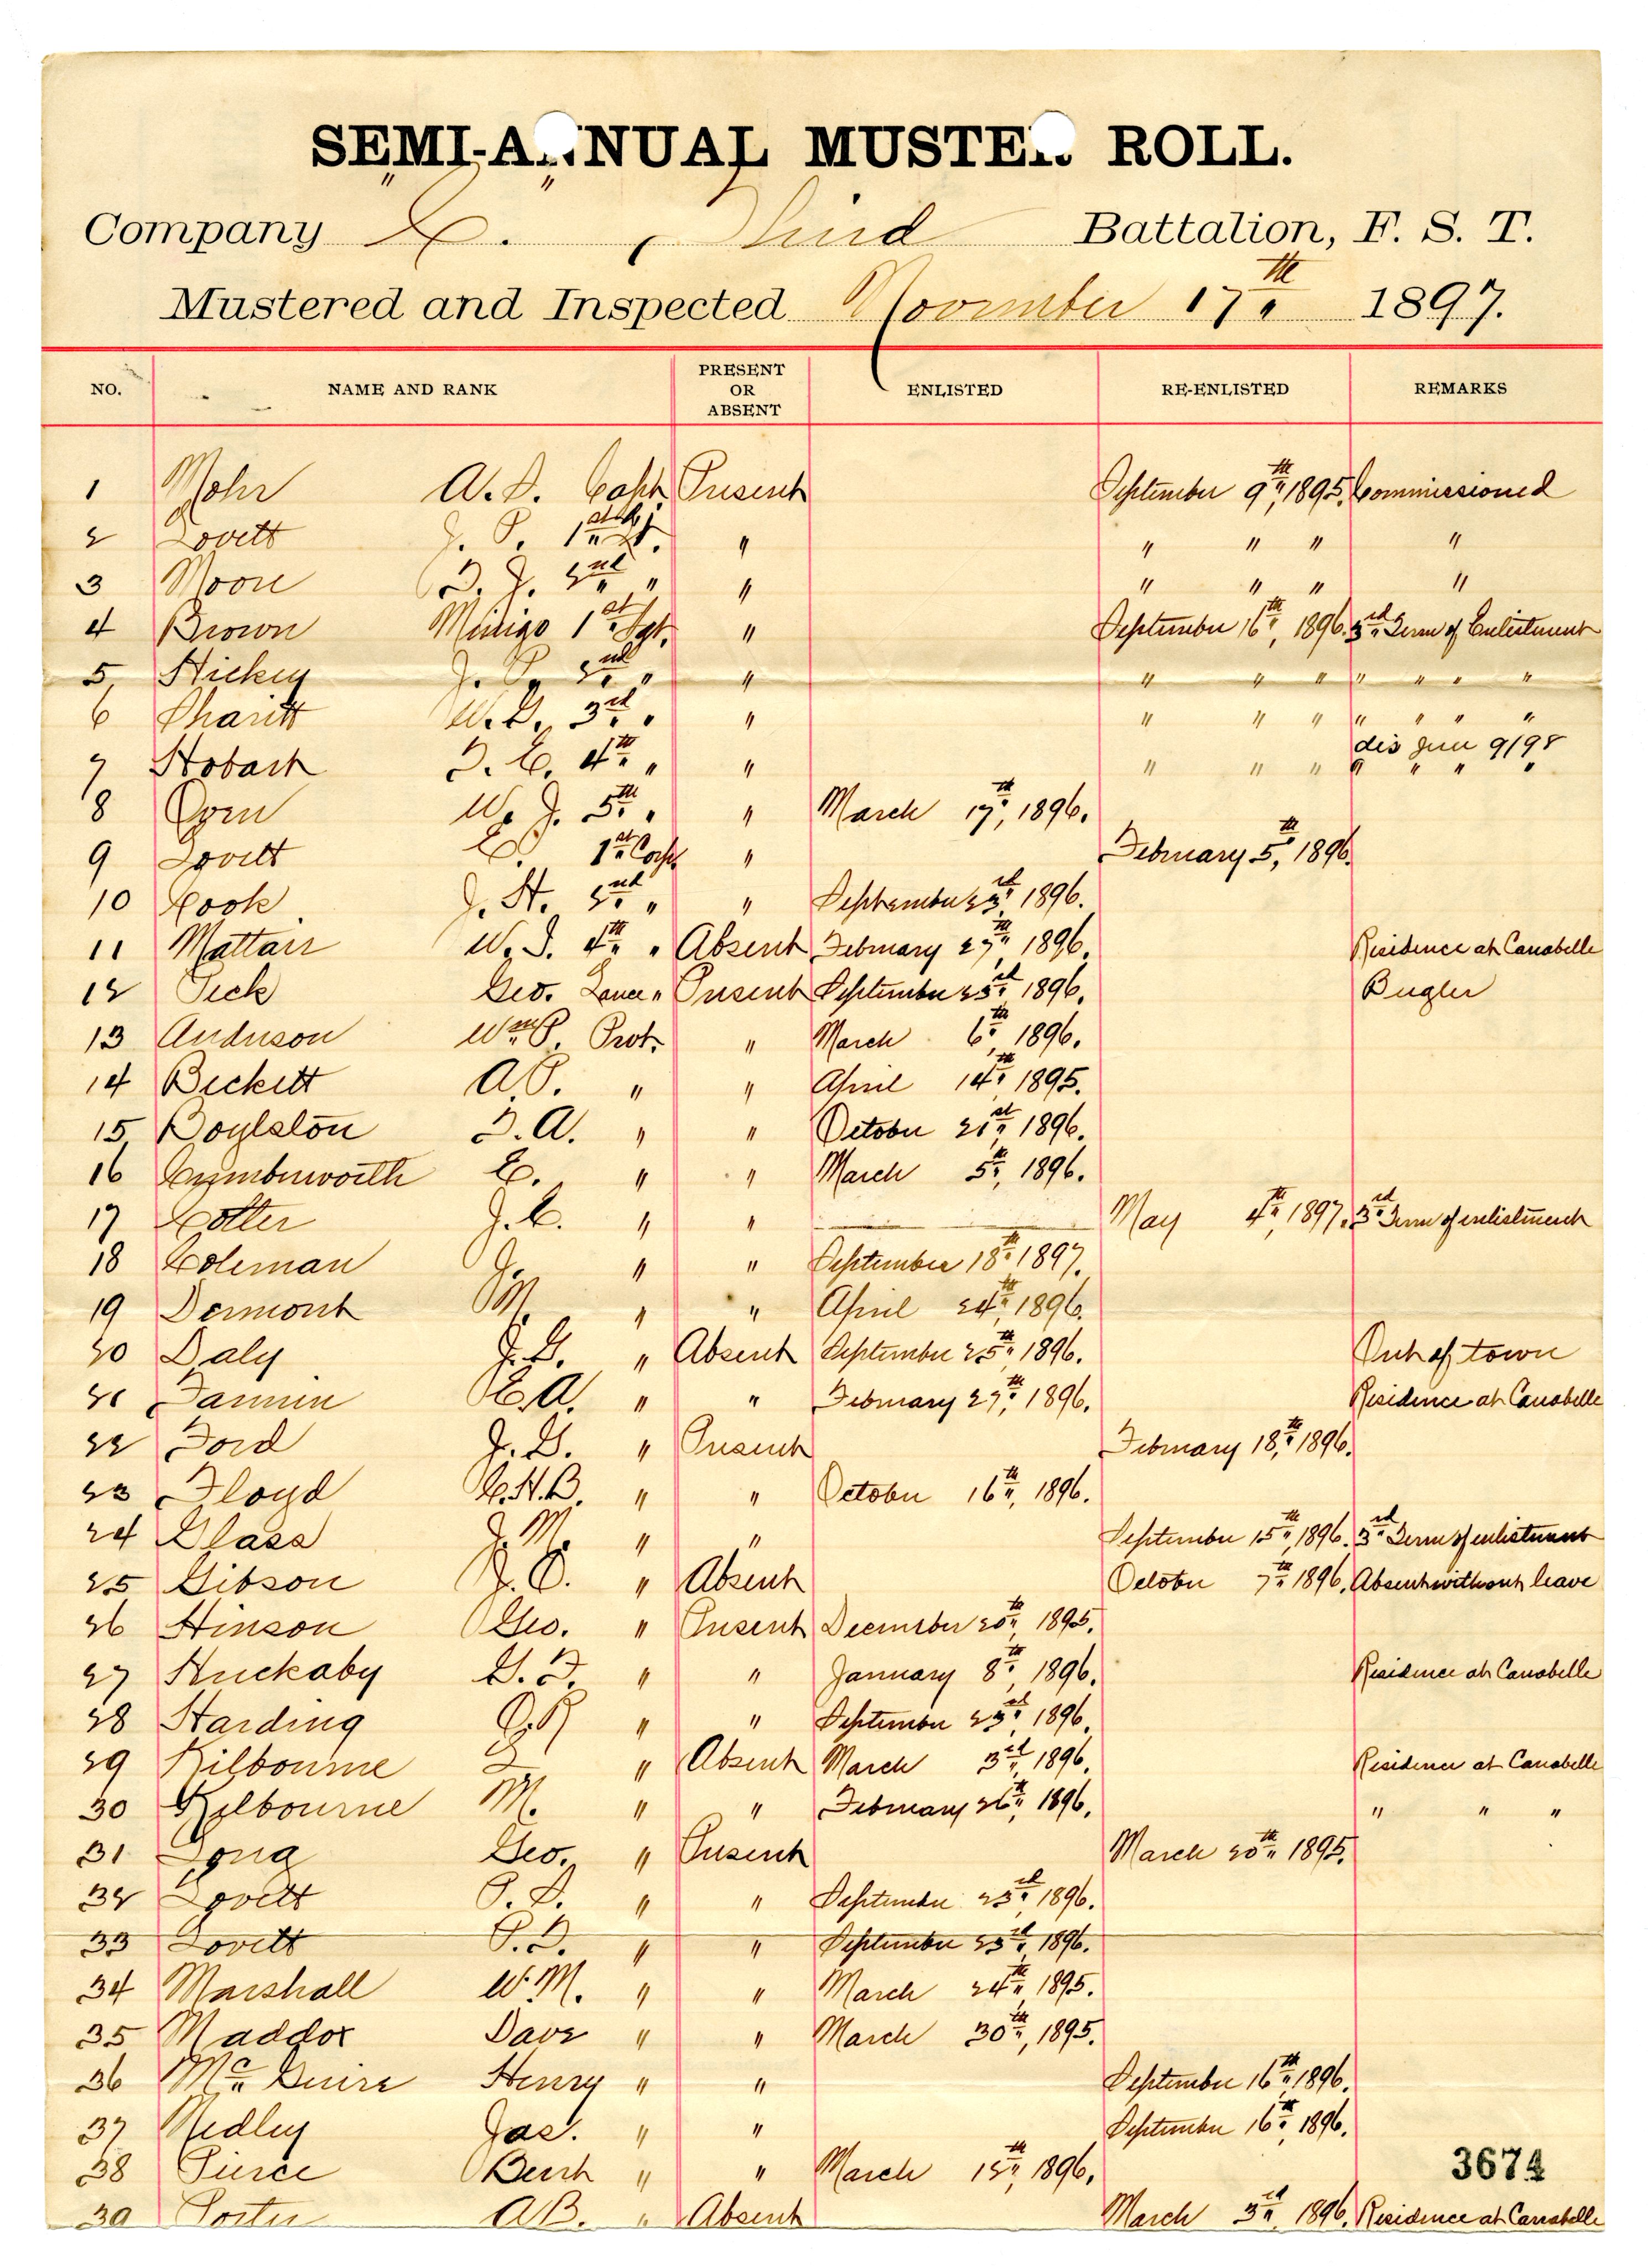 SEMI-ANNUAL MUSTER ROLL.
Company C. Third Battalion, F. S. T.
Mustered and Inspected November 17th 1897.
NO. NAME AND RANK PRESENT OR ABSENT ENLISTED RE-ENLISTED REMARKS
1 Mohr Capt. Present September 9th, 1895. Commissioned
2 Lovett J. P. 1st Lt. " " " " "
3 Moore 2nd " " " " " "
4 Brown Mingo 1st Sgt. " September 16th, 1896. 3rd Term of Enlistment
5 Hickey J. P. 2nd " " " " " " " " "
6 3rd " " " " " " " " "
dis Jan 9/98
7 Hobart 4th " " " " " " " " "
8 W. J. 5th " " March 17th, 1896.
9 Lovett 1st Corp " February 5th, 1896.
10 Cook J. H. 2nd " " September 23rd 1896.
11 Mattair 4th " Absent February 27th 1896. Residence at Carrabelle
12 Geo. Lance " Present September 23rd 1896. Bugler
13 Anderson Wm P. Prvt. " March 6th 1896.
14 Beckett A. P. " " April 14th 1895.
15 Boylston A. " " October 21st 1896.
16 " " March 5th, 1896.
17 Cotter J. C. " " May 4th, 1897. 3rd Term of enlistment
18 Coleman J. " " September 18th 1897.
19 Dermont M. " " April 24th, 1896.
20 Daly " Absent September 25th 1896. Out of town
21 A. " " February 27th, 1896. Residence at Carrabelle
22 Ford " Present February 18th, 1896.
23 Floyd C. H. B. " " October 16th, 1896.
24 Glass J. M. " " September 15th, 1896. 3rd Term of enlistment
25 Gibson J. O. " Absent October 7th 1896. Absent without leave
26 Hinson Geo. " Present December 20th 1895.
27 Huckaby " " January 8th, 1896. Residence at Carrabelle
28 Harding " " September 23rd 1896.
29 Kilbourne " Absent March 3rd, 1896. Residence at Carrabelle
30 Kilbourne M. " " February 26th, 1896. " " "
31 Long Geo. " Present March 20th 1895.
32 Lovett " " September 23rd 1896.
33 Lovett " " September 23rd, 1896.
34 Marshall W. M. " " March 24th 1895.
35 Maddox Dave " " March 30th, 1895.
36 McGuire Henry " " September 16th, 1896.
37 Nedley Jas. " " September 16th, 1896.
38 Pierce Bert " " March 15th, 1896.
3674
39 Porter A. B. " Absent March 3rd 1896. Residence at Carrabelle